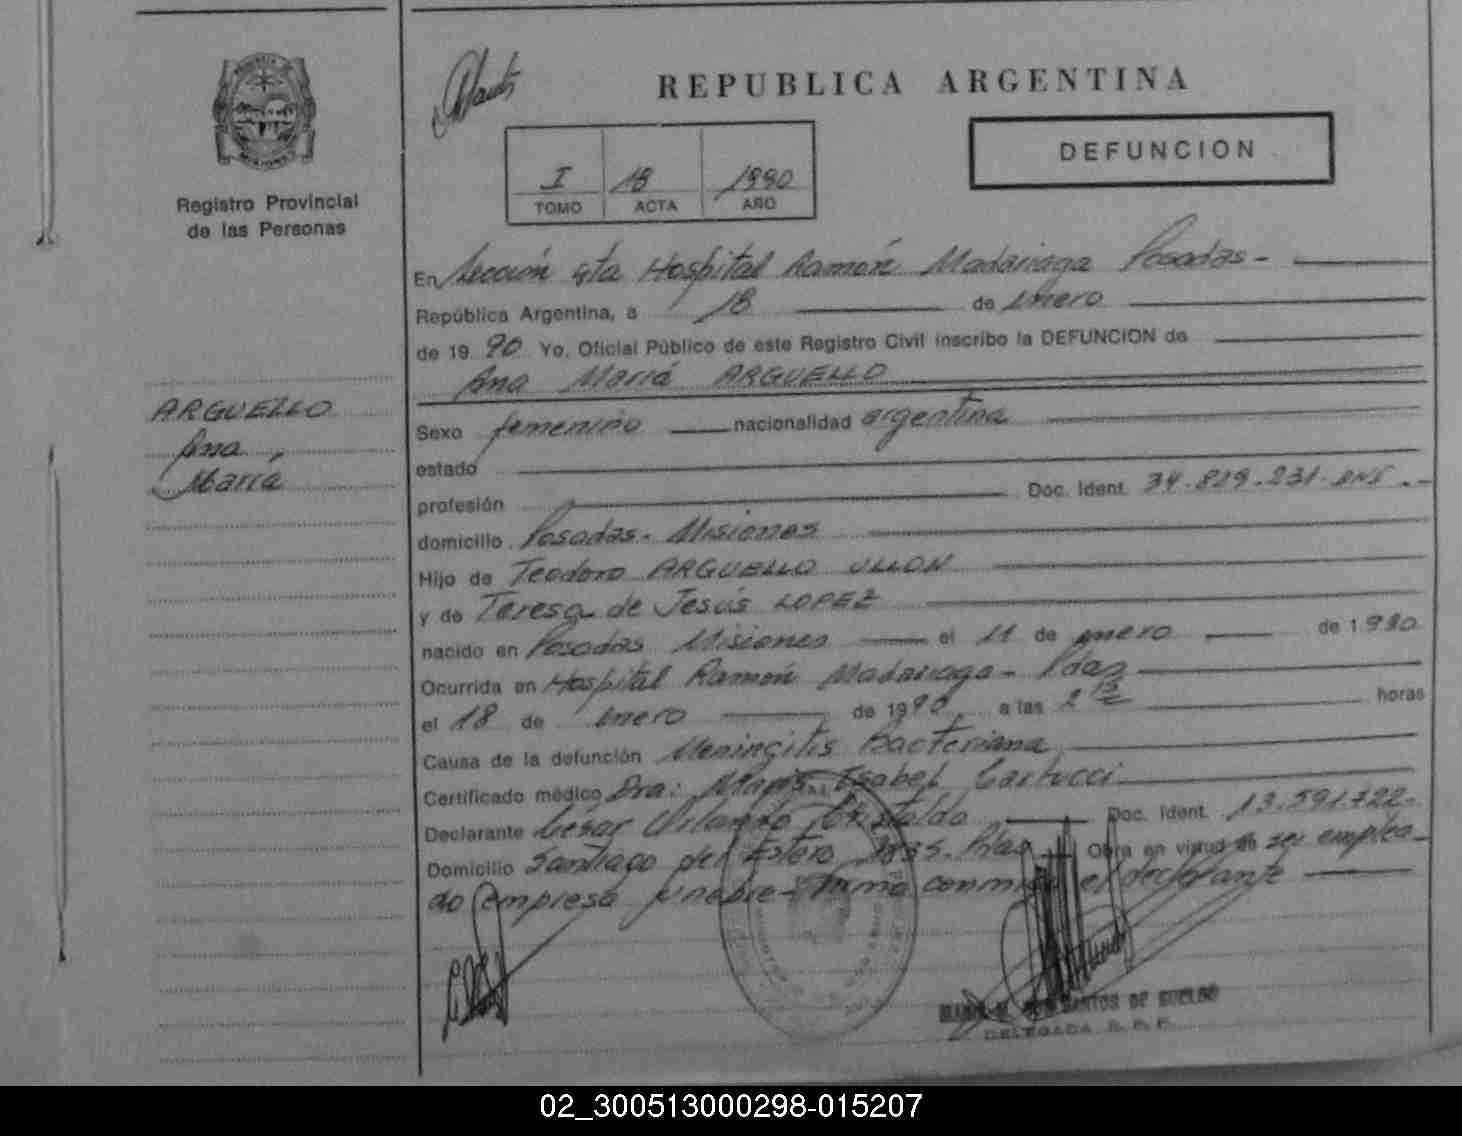 REPUBLICA ARGENTINA
DEFUNCION
I 18 1990
TOMO ACTA AÑO
Registro Provincial
de las Personas
En Sección 4ta Hospital Ramón Madariaga Posadas-
República Argentina, a 18 de enero
de 1990 Yo, Oficial Público de este Registro Civil inscribo la DEFUNCION de
Ana María ARGUELLO
ARGUELLO
Ana
María
Sexo femenino nacionalidad argentina
estado
profesión Doc. Ident. 34.819.231.DNI.-
domicilio Posadas- Misiones
Hijo de Teodoro ARGUELLO ULLON
y de Teresa de Jesús LOPEZ
nacido en Posadas Misiones el 11 de enero de 1.990
Ocurrida en Hospital Ramón Madariaga- Pdas
el 18 de enero de 1990 a las 2 horas
Causa de la defunción Meningitis Bacteriana
Certificado médico Dra: María Isabel Cartucci
Declarante Cesar Cristaldo Doc. Ident. 13.591.722-
Domicilio Santiago del Estero 1835. Pdas Obra en virtud de ser emplea-
do empresa funebre- Firma conmigo el declarante
SANTOS DE SUELDO
DELEGADA R. P. P.
02_300513000298-015207